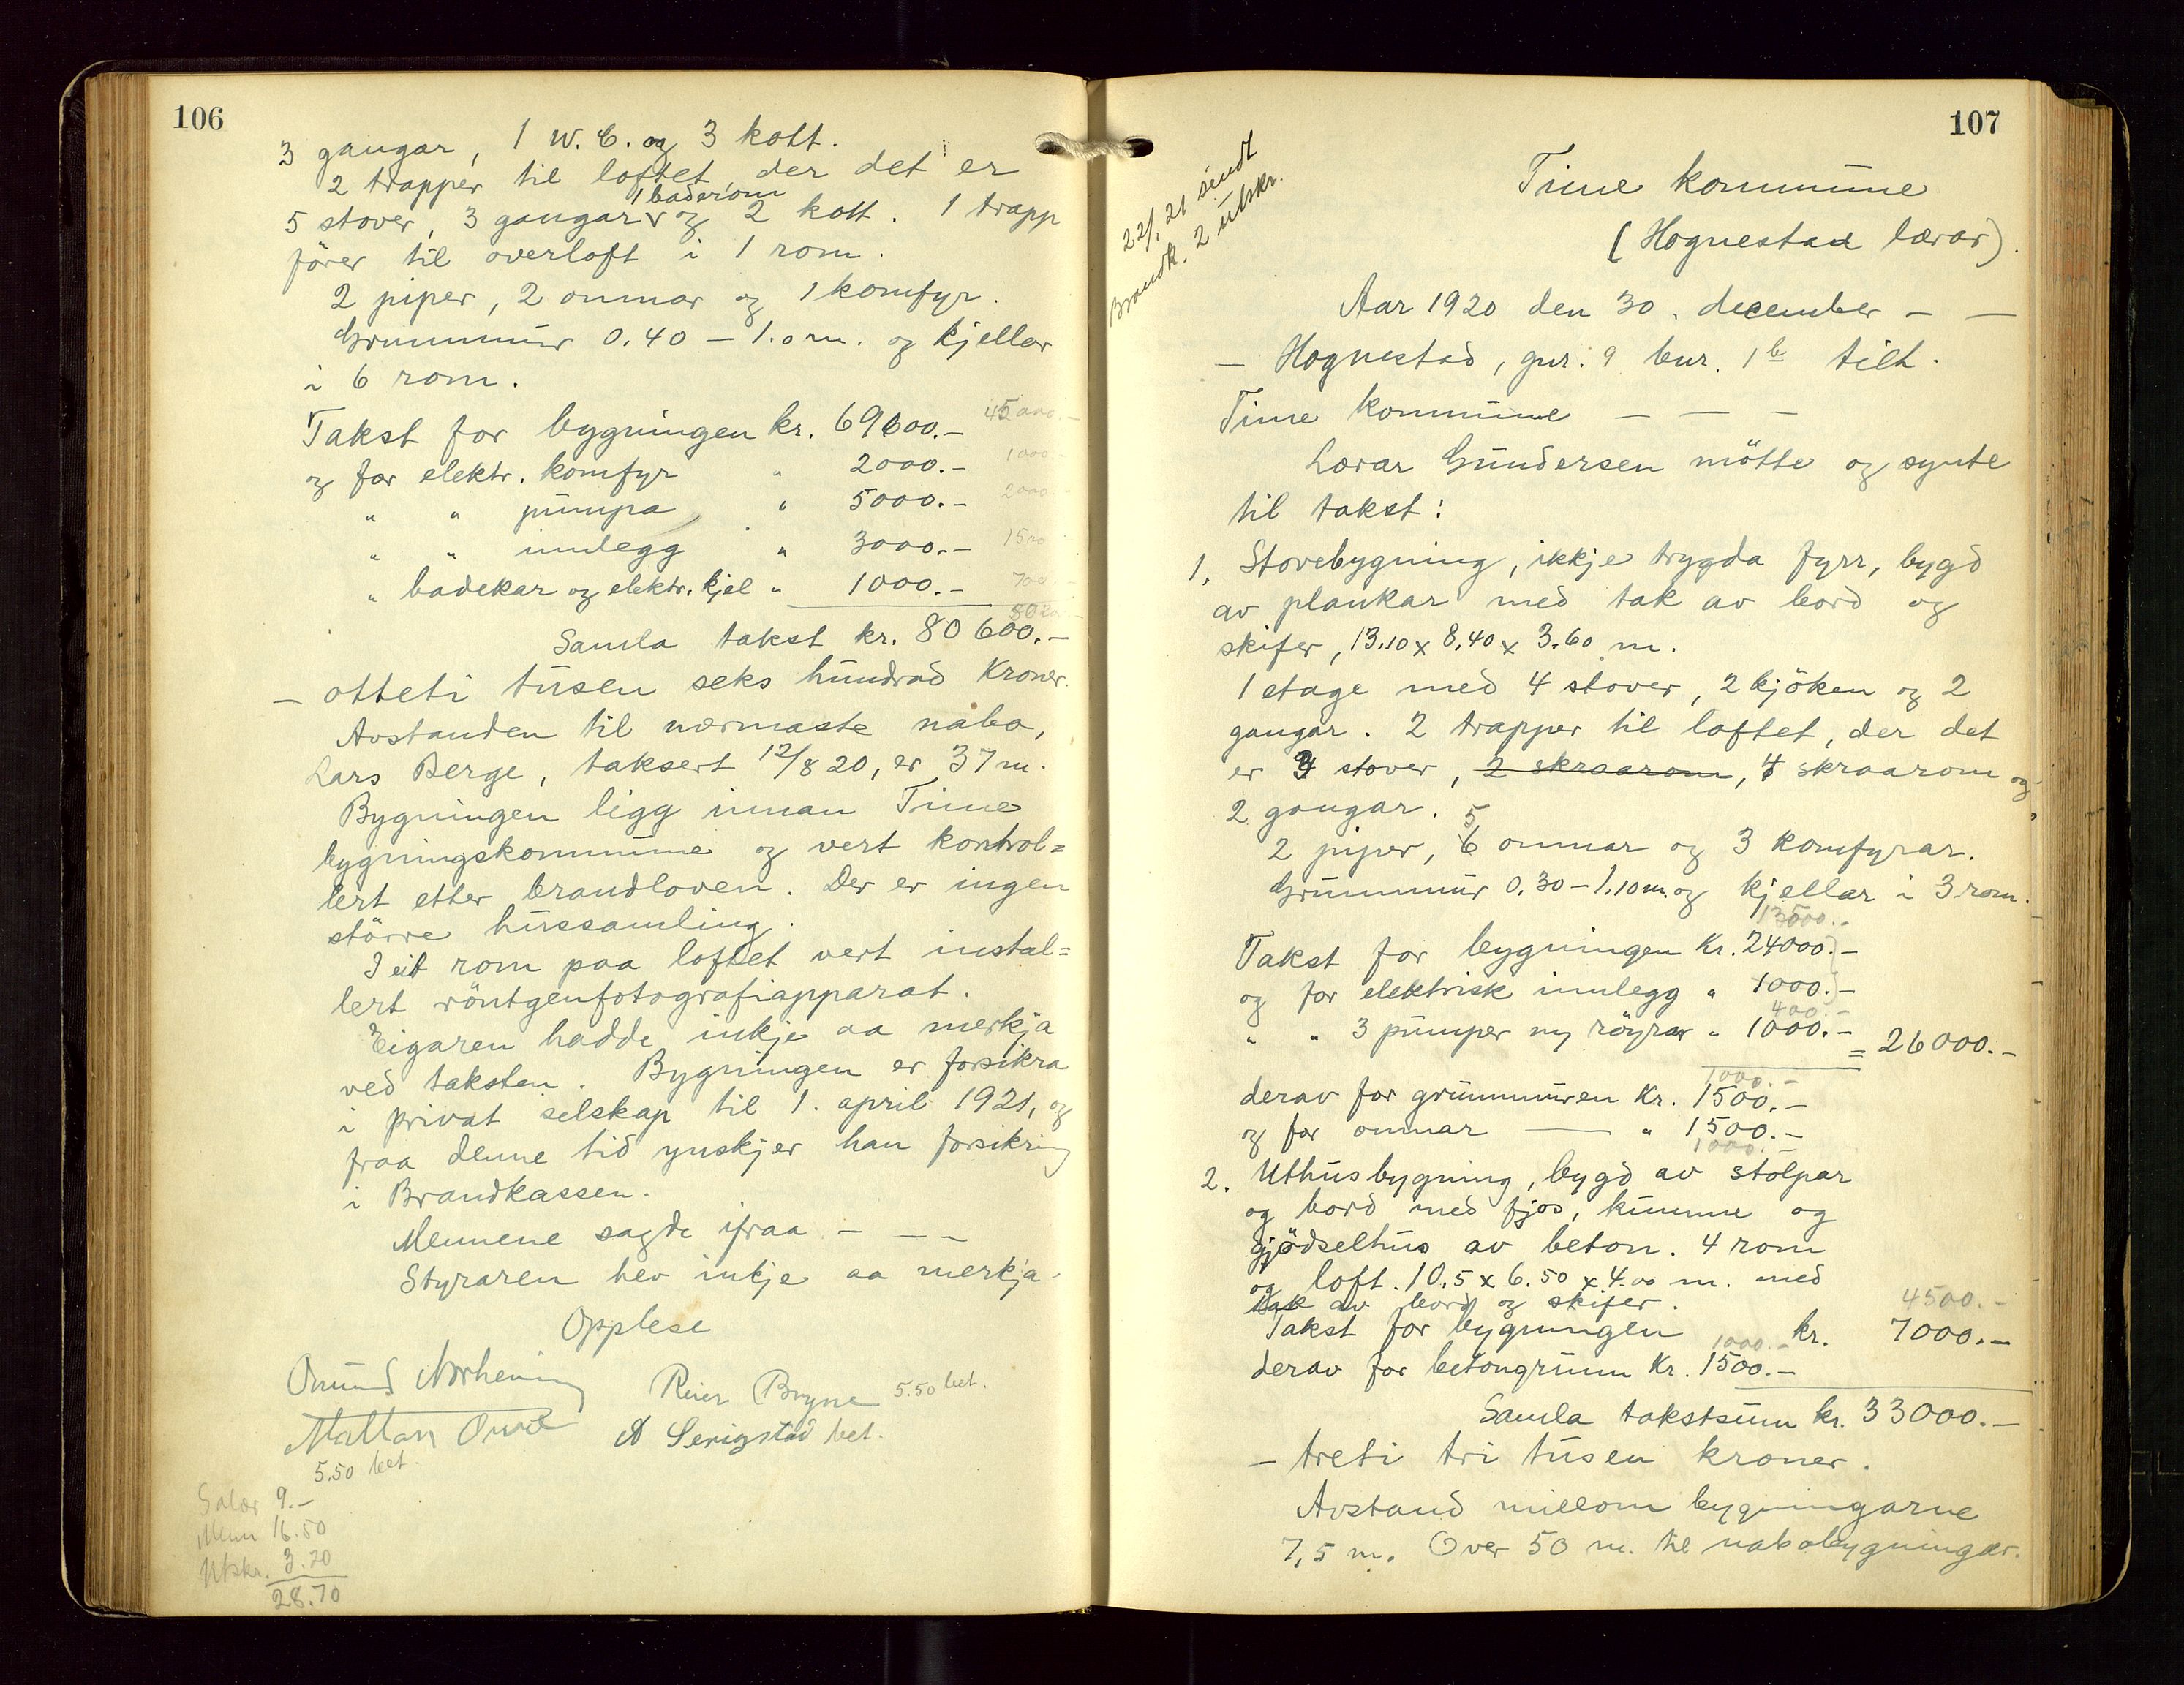 106
3 gangar, 1 W.C. og 3 kott.
2 trapper til loftet, der det er
1 baderom
5 stover, 3 gangar v og 2 kott. 1 trapp
förer til overloft i 1 rom.
2 piper, 2 omnar og 1 komfyr.
Grunnmur 0.40 – 1.0 m. og kjellar
i 6 rom.
Takst for bygningen kr. 69600.– 45000.–
og for elektr. komfyr " 2000.– 1000.–
" " pumpa " 5000.– 2000.–
" " innlegg " 3000.– 1500
" badekar og elektr. kjel " 1000.– 700.–
Samla takst kr. 80600.–
– otteti tusen seks hundrad Kroner.
Avstanden til nærmaste nabo,
Lars Berge, taksert 12/8 20, er 37 m.
Bygningen ligg innan Time
bygningskommune og vert kontrol=
lert etter brandloven. Der er ingen
större hussamling.
I eit rom paa loftet vert instal=
lert röntgenfotografiapparat.
Eigaren hadde inkje aa merkja
ved taksten. Bygningen er forsikra
i privat selskap til 1. april 1921, og
fraa denne tid ynskjer han forsikring
i Brandkassen.
Mennene sagde ifraa – – –
Styraren hev inkje aa merkja.
Opplese
Omund Norheim
Reier Bryne 5.50 bet.
A Serigstad bet.
5.50 bet.
Salær 9.–
Menn 16.50
Utskr. 3.20
28.70
107
22/1 21 sendt
Brandk. 2 utskr.
Time kommune
(Hognestad lærar).
Aar 1920 den 30. december – –
– Hognestad, gnr. 9 bnr. 1 b tilh.
Time kommune – – –
Lærar Gundersen mötte og synte
til takst:
1. Stovebygning, ikkje trygda fyrr, bygd
av plankar med tak av bord og
skifer, 13.10 x 8.40 x 3.60 m.
1 etage med 4 stover, 2 kjöken og 2
gangar. 2 trapper til loftet, der det
er 4 stover, 2 skraarom, 4 skraarom og
2 gangar.
5
2 piper, 6 omnar og 3 komfyrar.
Grunnmur 0.30 – 1.10 m. og kjellar i 3 rom.
13500.–
Takst for bygningen Kr. 24000.–
og for elektrisk innlegg " 1000.–
400.–
" " 3 pumper m/ röyrar " 1000.– = 26000.–
1000.–
derav for grunnmuren Kr. 1500.–
og for omnar — " 1500.–
1000.–
2. Uthusbygning, bygd av stolpar
og bord med fjos, kumme og
gjödselhus av beton. 4 rom
og loft. 10.5 x 6.50 x 4.00 m. med
tak av bord og skifer. 4500.–
Takst for bygningen kr. 7000.–
1000.–
derav for betongrunn Kr. 1500.–
Samla takstsum kr. 33000.–
– treti tri tusen kroner.
Avstand millom bygningarne
7,5 m. Over 50 m. til nabobygningar.